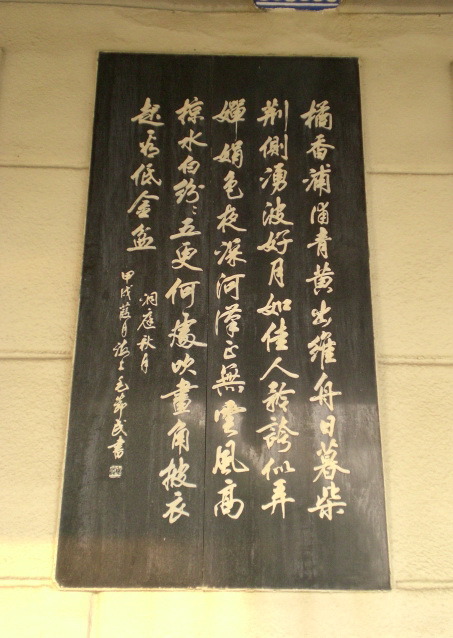 橘香浦浦青黃出維舟日暮柴
荆側湧波好月如佳人矜誇似弄
嬋娟色夜深河漢正無雲風高
掠水白紛〻五更何處吹畫角披衣
起看低金盆
洞庭秋月
甲戌月海上毛節民書